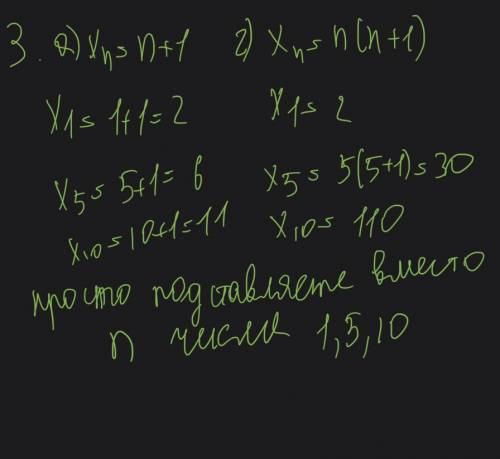 3. а) xₙ = n+1 г) xₙ = n(n+1)
x₁ = 1+1 = 2 x₁ = 2
x₅ = 5+1 = 6 x₅ = 5(5+1) = 30
x₁₀ = 10+1 = 11 x₁₀ = 110
просто подставляете вместо
n числа 1,5,10